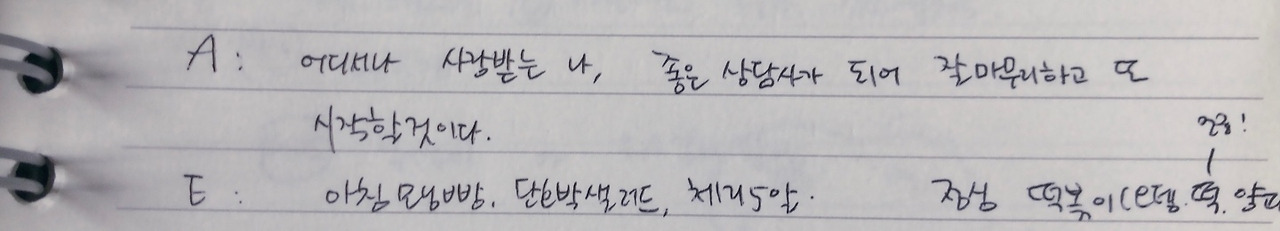 A : 어디서나 사랑받는 나, 좋은 상담사가 되어 잘마무리하고 또
시작할것이다.
E : 아침 모닝빵. 단호박샐러드, 체리5알. 점심 떡볶이(오뎅.떡.